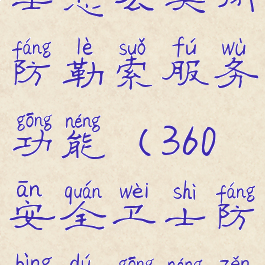 fáng lè suǒ fú wù
防勒索服务
gōng néng
功能（360
ān quán wèi shì fáng
安全卫士防
bìng dú gōng néng zěn